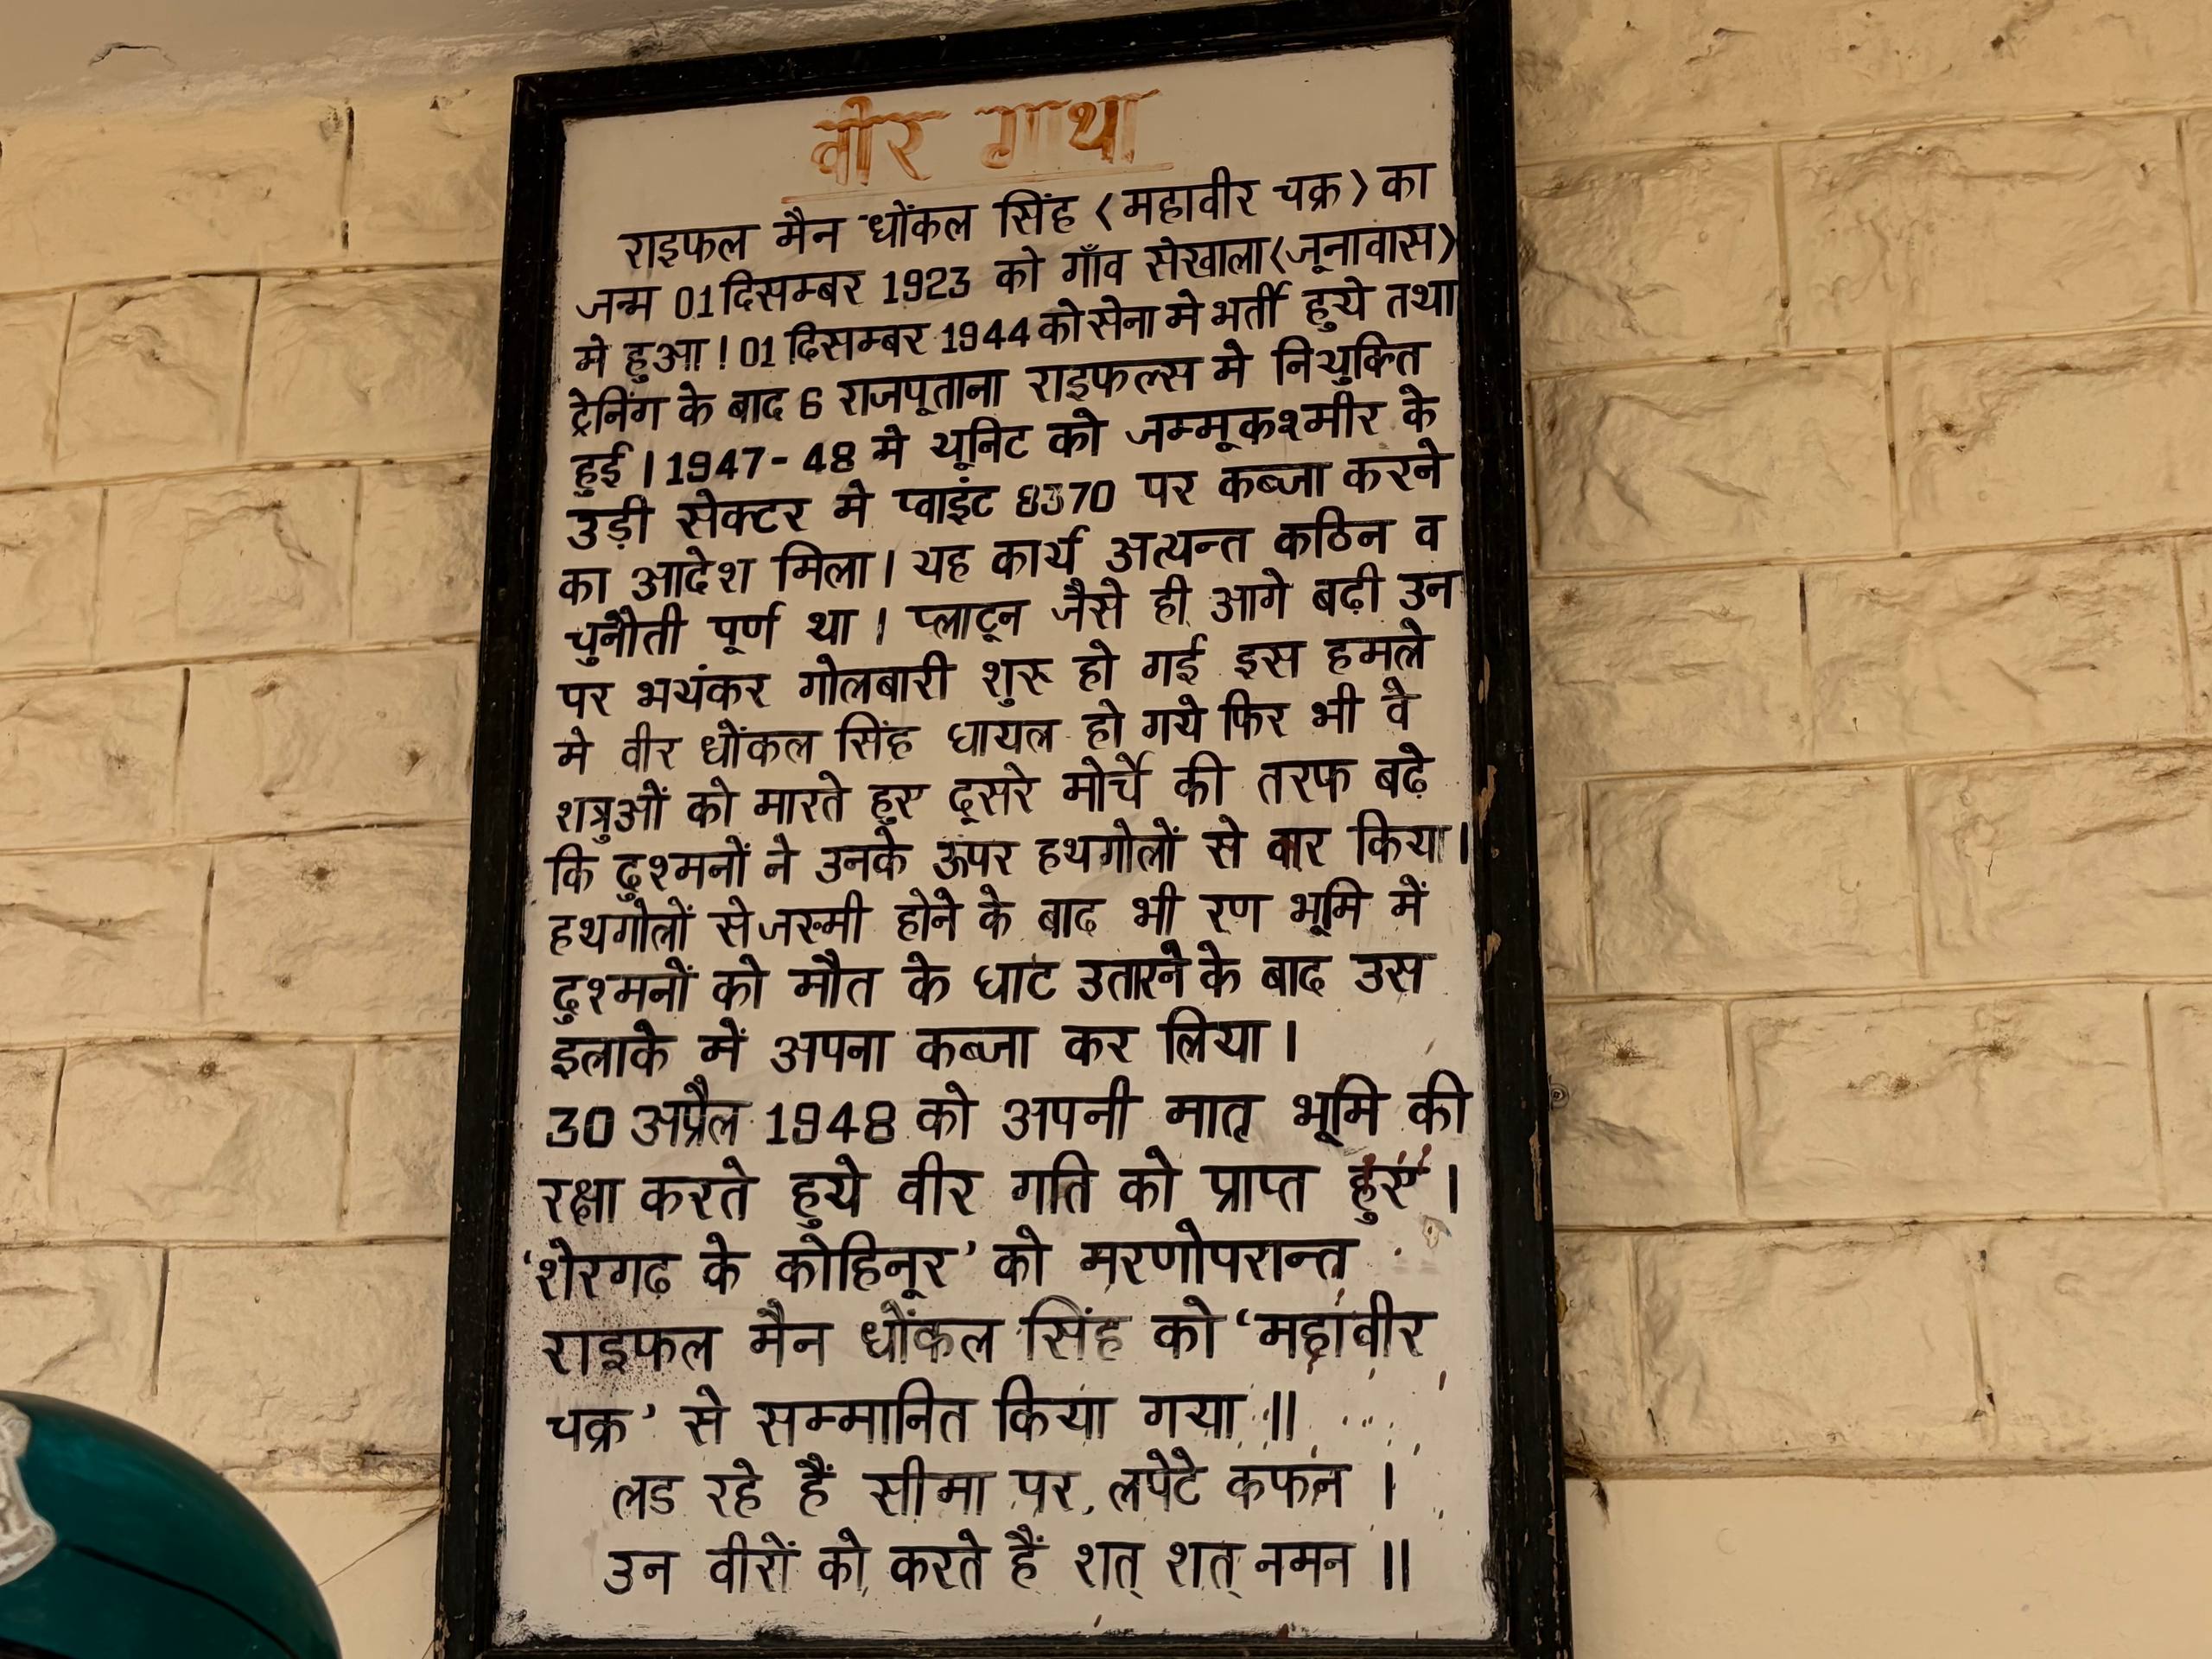 वीर गाथा
राइफल मैन धोंकल सिंह (महावीर चक्र) का
जन्म 01 दिसम्बर 1923 को गाँव सेखाला (जूनावास)
मे हुआ ! 01 दिसम्बर 1944 को सेना मे भर्ती हुये तथा
ट्रेनिंग के बाद 6 राजपूताना राइफल्स मे नियुकित
हुई । 1947-48 मे यूनिट को जम्मूकश्मीर के
उड़ी सेक्टर मे प्वाइंट 8370 पर कब्जा करने
का आदेश मिला । यह कार्य अत्यन्त कठिन व
चुनौती पूर्ण था । प्लाटून जैसे ही आगे बढ़ी उन
पर भयंकर गोलबारी शुरू हो गई इस हमले
मे वीर धोंकल सिंह घायल हो गये फिर भी वे
शत्रुओं को मारते हुए दूसरे मोर्चे की तरफ बढ़े
कि दुश्मनों ने उनके ऊपर हथगोलों से वार किया ।
हथगोलों से जख्मी होने के बाद भी रण भूमि में
दुश्मनों को मौत के घाट उतारने के बाद उस
इलाके में अपना कब्जा कर लिया ।
30 अप्रैल 1948 को अपनी मातृ भूमि की
रक्षा करते हुये वीर गति को प्राप्त हुए ।
'शेरगढ के कोहिनूर' को मरणोपरान्त
राइफल मैन धोंकल सिंह को 'महावीर
चक्र' से सम्मानित किया गया ॥
लड रहे हैं सीमा पर लपेटे कफन ।
उन वीरों को करते हैं शत् शत् नमन ॥